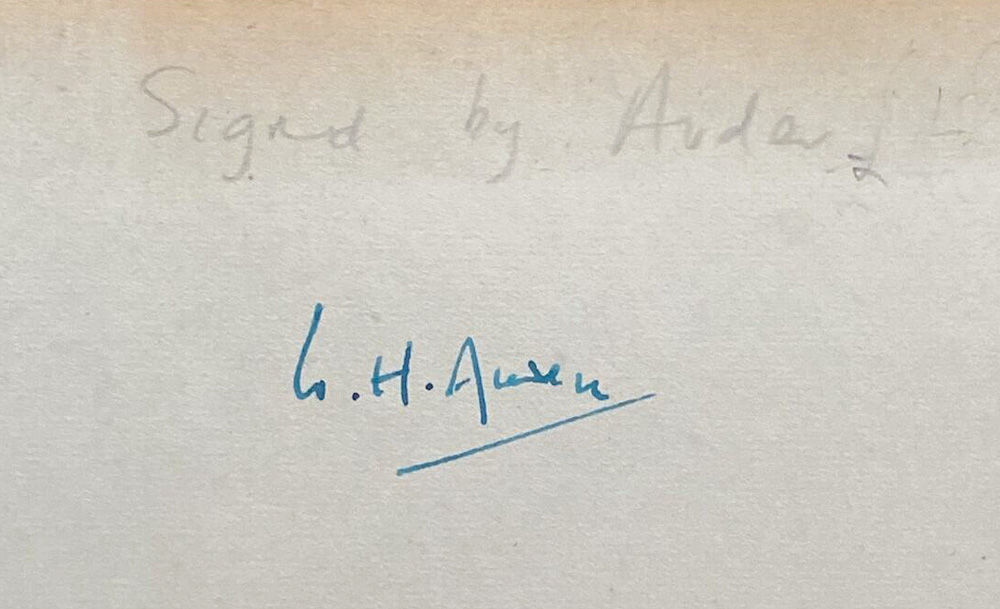 Signed by Auden
W.H. Auden